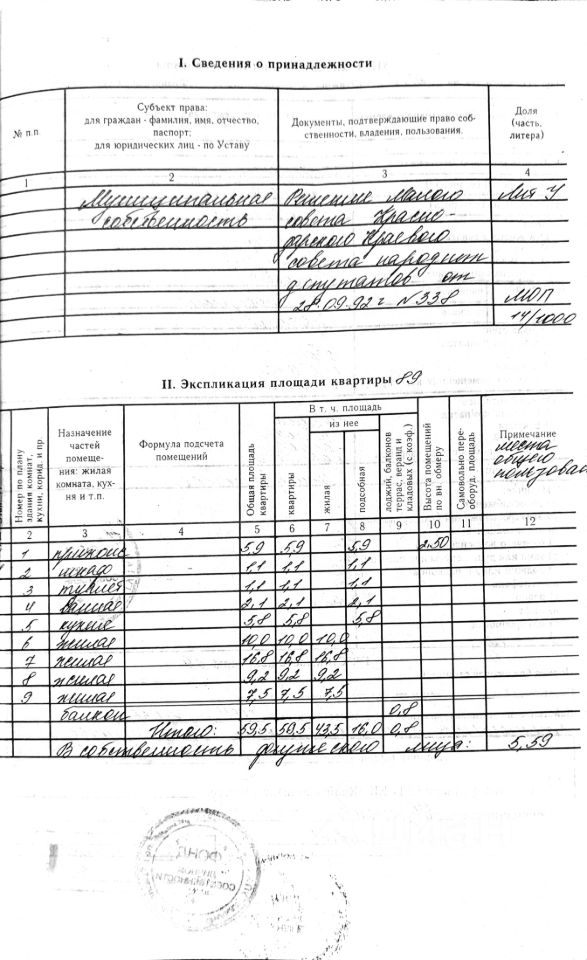 I. Сведения о принадлежности
№ п.п.
Субъект права:
для граждан - фамилия, имя, отчество,
паспорт;
для юридических лиц - по Уставу
Документы, подтверждающие право соб-
ственности, владения, пользования.
Доля
(часть,
литера)
1 2 3 4
Муниципальная Решение Малого Лит У
собственность совета Красно-
дарского Краевого
совета народных
депутатов от
28.09.92 г N 338 МОП
14/1000
II. Экспликация площади квартиры 89
Номер по плану
здания комнат,
кухни, корид. и пр
Назначение
частей
помеще-
ния: жилая
комната, кух-
ня и т.п.
Формула подсчета
помещений
Общая площадь
квартиры
В т. ч. площадь
из нее
квартиры
жилая
подсобная
лоджий, балконов
террас, веранд и
кладовых (с коэф.)
Высота помещений
по вн. обмеру
Самовольно пере-
оборуд. площадь
Примечание
места
общего
пользован
2 3 4 5 6 7 8 9 10 11 12
1 прихож 5,9 5,9 5,9 2.50
2 шкаф 1,1 1,1 1,1
3 туалет 1,1 1,1 1,1
4 ванная 2,1 2,1 2,1
5 кухня 5,8 5,8 5,8
6 жилая 10,0 10,0 10,0
7 жилая 16,8 16,8 16,8
8 жилая 9,2 9,2 9,2
9 жилая 7,5 7,5 7,5
балкон 0,8
Итого: 59,5 59,5 43,5 16,0 0,8
В собственность физического лица: 5,59